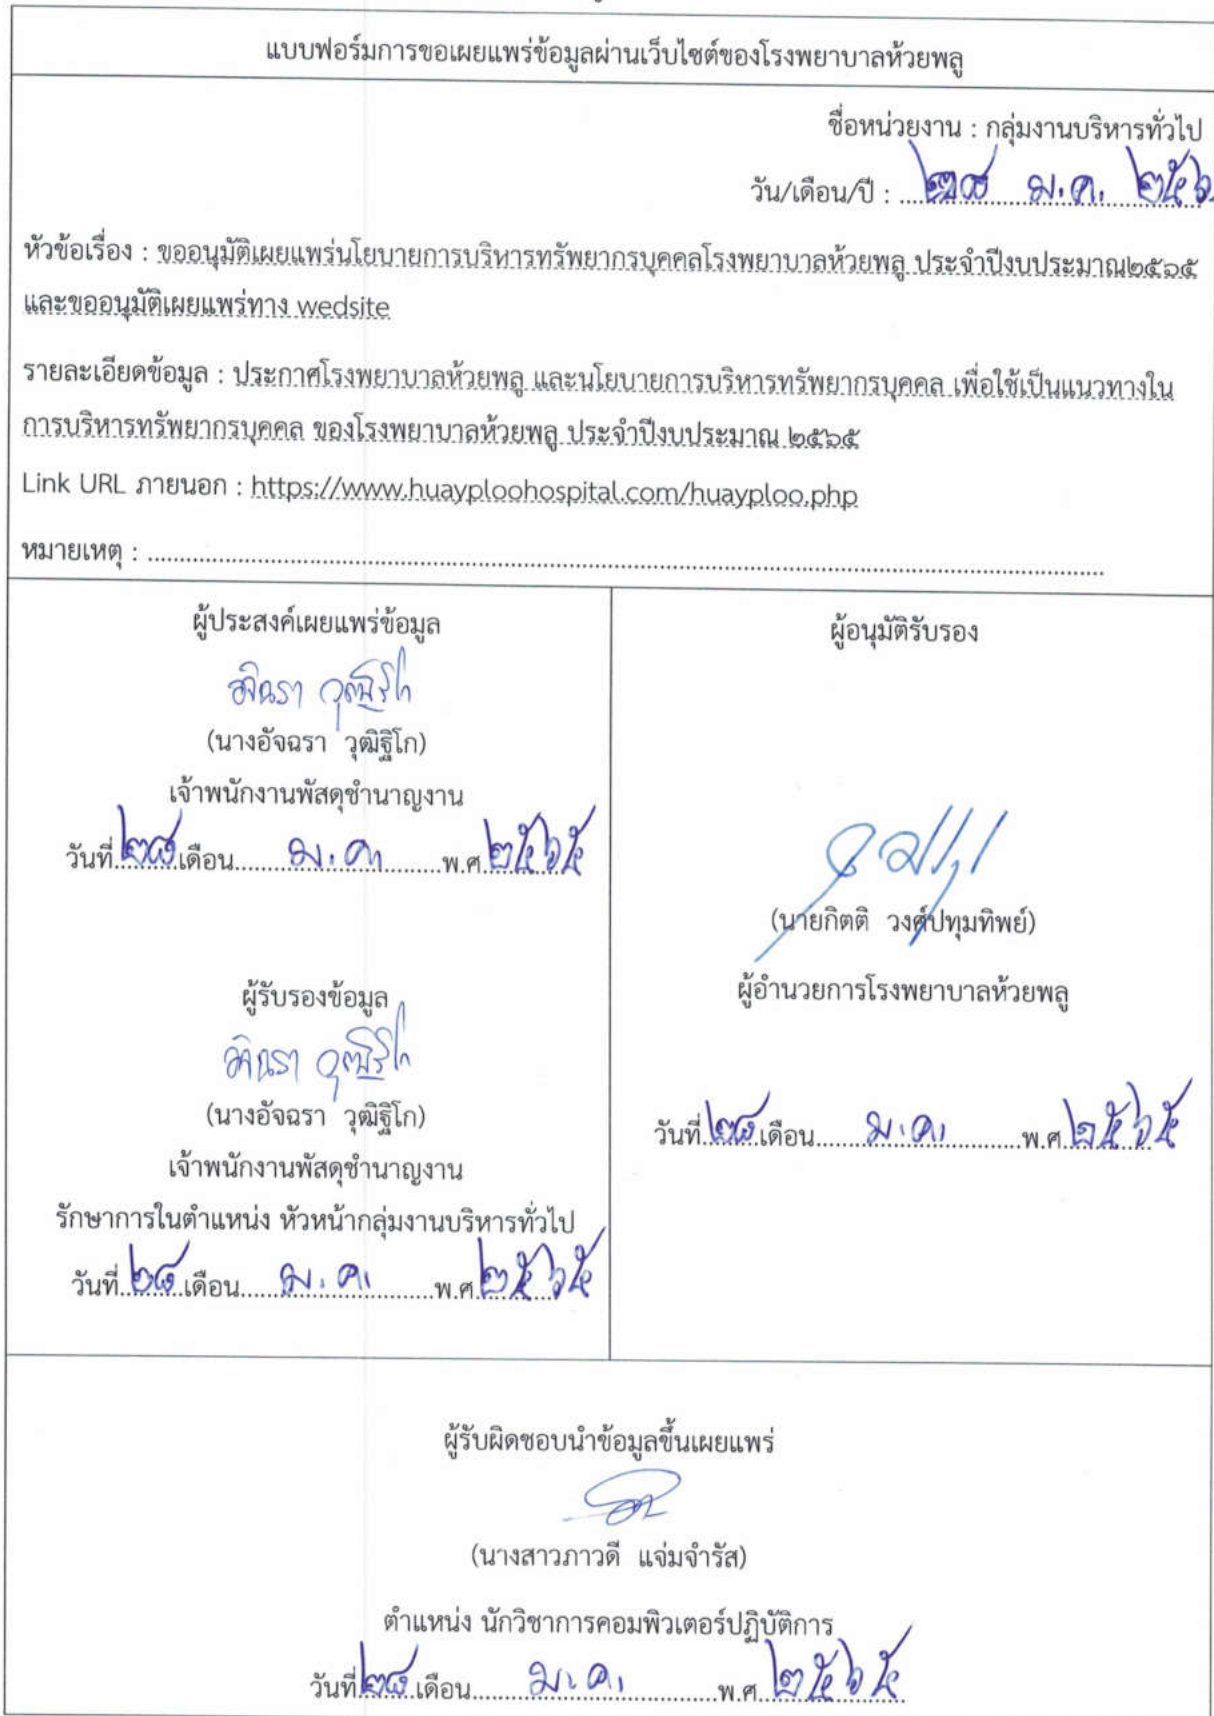 แบบฟอร์มการขอเผยแพร่ข้อมูลผ่านเว็บไซต์ของโรงพยาบาลห้วยพลู
ชื่อหน่วยงาน : กลุ่มงานบริหารทั่วไป
วัน/เดือน/ปี : ๒๘ ม.ค. ๒๕๖
หัวข้อเรื่อง : ขออนุมัติเผยแพร่นโยบายการบริหารทรัพยากรบุคคลโรงพยาบาลห้วยพลู ประจำปีงบประมาณ๒๕๖๕
และขออนุมัติเผยแพร่ทาง wedsite
รายละเอียดข้อมูล : ประกาศโรงพยาบาลห้วยพลู และนโยบายการบริหารทรัพยากรบุคคล เพื่อใช้เป็นแนวทางใน
การบริหารทรัพยากรบุคคล ของโรงพยาบาลห้วยพลู ประจำปีงบประมาณ ๒๕๖๕
Link URL ภายนอก : https://www.huayploohospital.com/huayploo.php
หมายเหตุ : ........................................................................
ผู้ประสงค์เผยแพร่ข้อมูล
อัจฉรา วุฒิฐิโก
(นางอัจฉรา วุฒิฐิโก)
เจ้าพนักงานพัสดุชำนาญงาน
วันที่ ๒๘ เดือน ม.ค. พ.ศ ๒๕๖๕
ผู้รับรองข้อมูล
อัจฉรา วุฒิฐิโก
(นางอัจฉรา วุฒิฐิโก)
เจ้าพนักงานพัสดุชำนาญงาน
รักษาการในตำแหน่ง หัวหน้ากลุ่มงานบริหารทั่วไป
วันที่ ๒๘ เดือน ม.ค. พ.ศ ๒๕๖๕
ผู้อนุมัติรับรอง
(นายกิตติ วงศ์ปทุมทิพย์)
ผู้อำนวยการโรงพยาบาลห้วยพลู
วันที่ ๒๘ เดือน ม.ค. พ.ศ ๒๕๖๕
ผู้รับผิดชอบนำข้อมูลขึ้นเผยแพร่
(นางสาวภาวดี แจ่มจำรัส)
ตำแหน่ง นักวิชาการคอมพิวเตอร์ปฏิบัติการ
วันที่ ๒๘ เดือน ม.ค. พ.ศ ๒๕๖๕